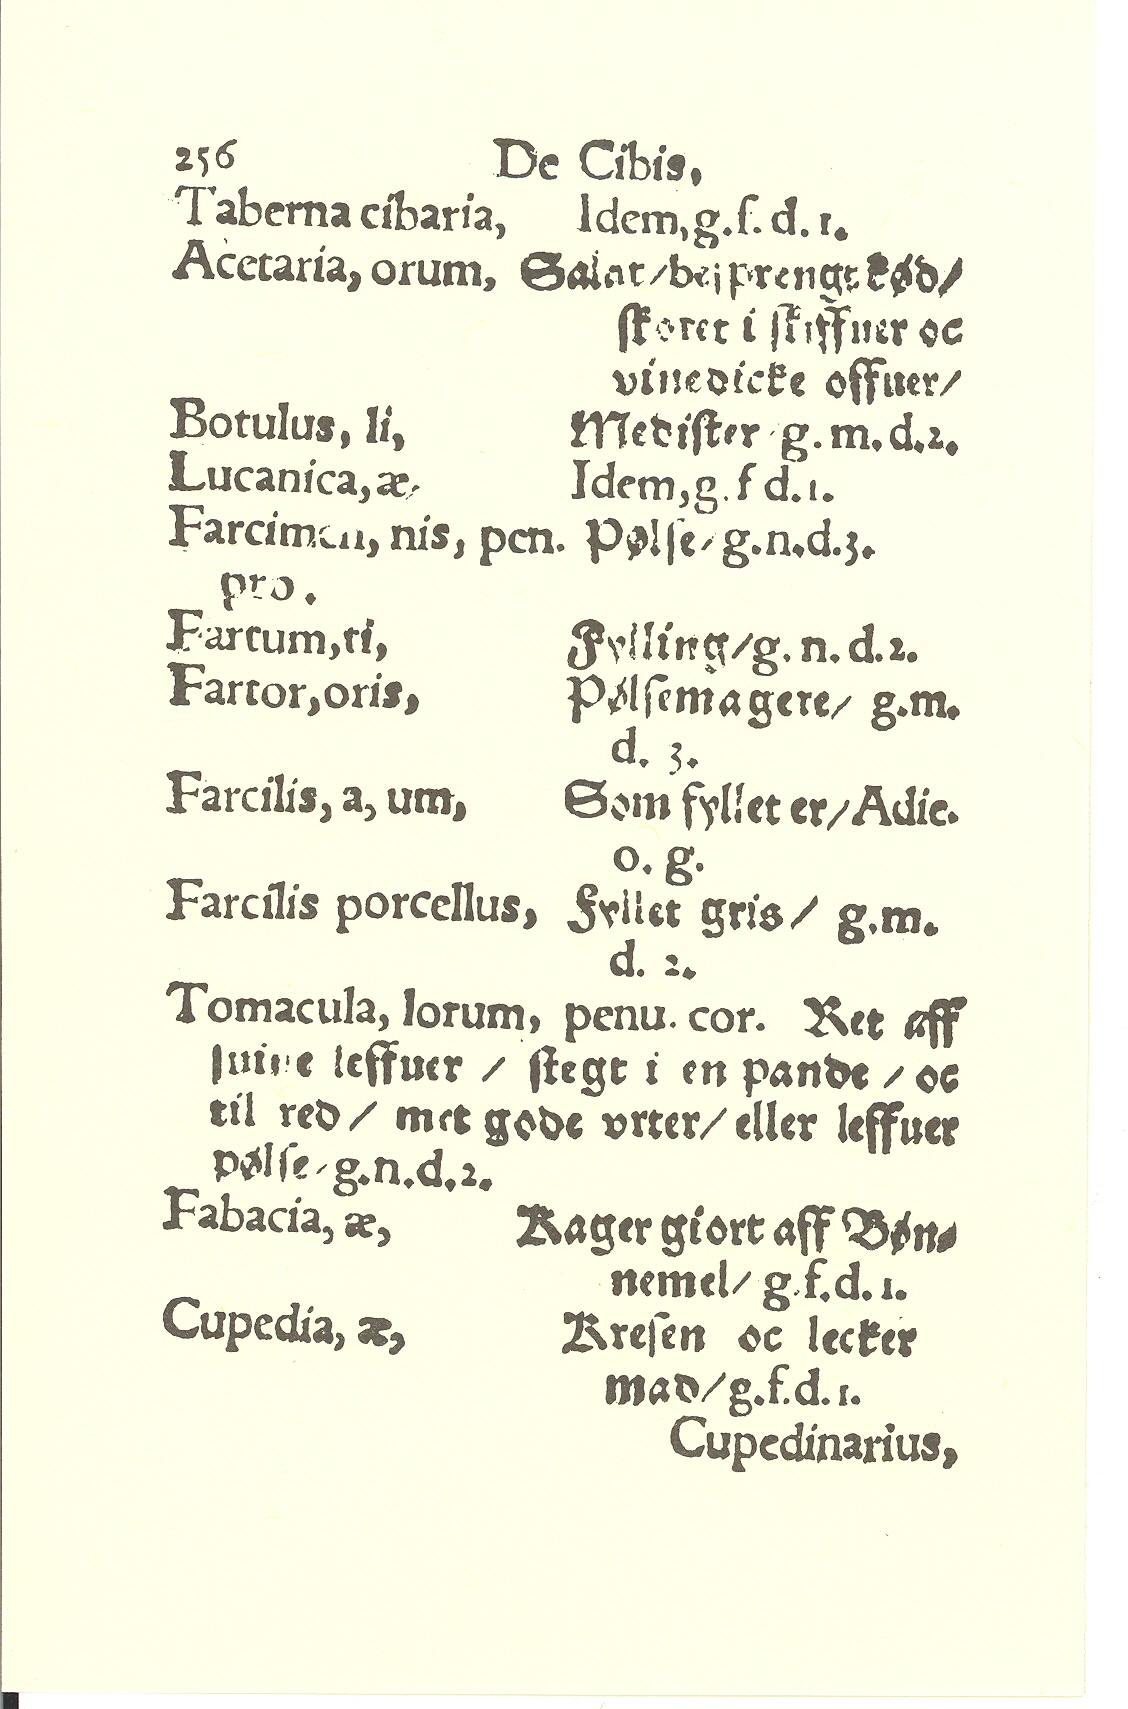 256 De Cibis,
Taberna cibaria, Idem, g. f. d. 1.
Acetaria, orum, Salat / besprengt kød /
skoret i skiffuer oc
vinedicke offuer /
Botulus, li, Medister g. m. d. 2.
Lucanica, æ, Idem, g. f d. 1.
Farcimen, nis, pen. Pølse / g. n. d. 3.
pro.
Fartum, ti, Fylling / g. n. d. 2.
Fartor, oris, Pølsemagere / g. m.
d. 3.
Farcilis, a, um, Som fyllet er / Adie.
o. g.
Farcilis porcellus, Fyllet gris / g. m.
d. 2.
Tomacula, lorum, penu. cor. Ret aff
suine leffuer / stegt i en pande / oc
til red / met gode vrter / eller leffuer
pølse / g. n. d. 2.
Fabacia, æ, Kager giort aff Bøn⸗
nemel / g. f. d. 1.
Cupedia, æ, Kresen oc lecker
mad / g. f. d. 1.
Cupedinarius,